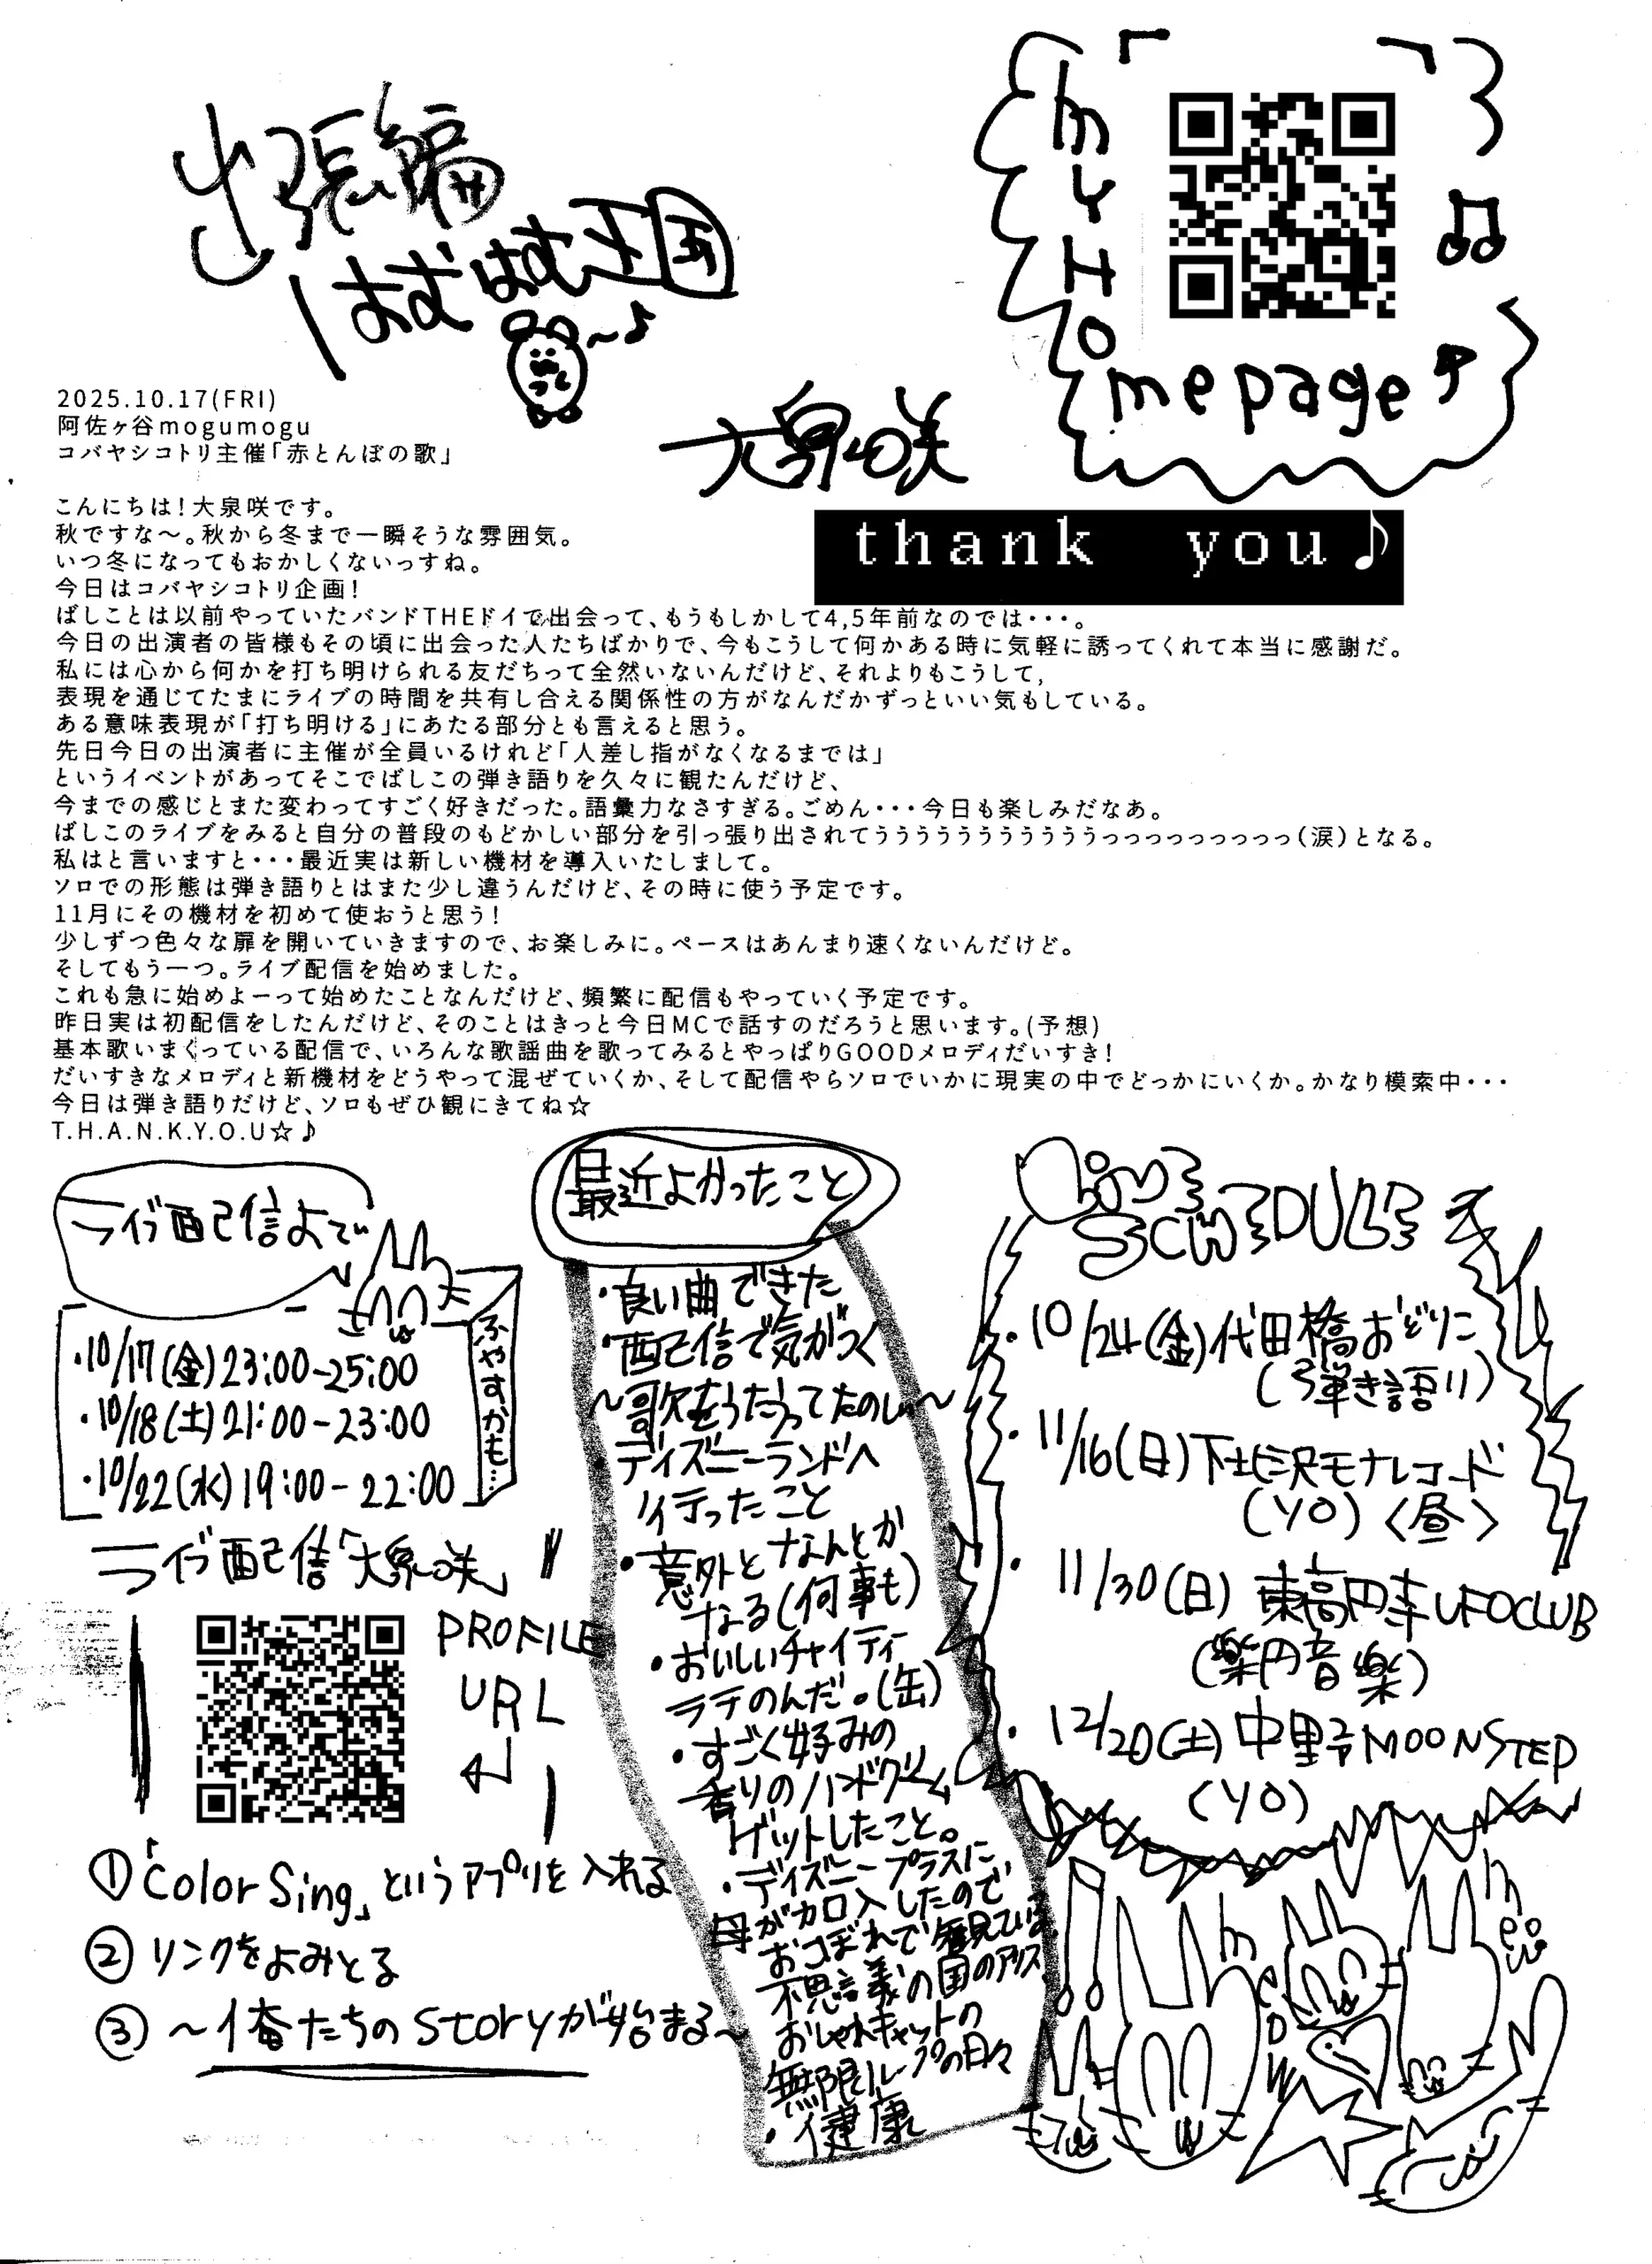 出張編
はむはむ王国
my Homepage
大泉咲
thank you♪
2025.10.17(FRI)
阿佐ヶ谷mogumogu
コバヤシコトリ主催「赤とんぼの歌」
こんにちは!大泉咲です。
秋ですな〜。秋から冬まで一瞬そうな雰囲気。
いつ冬になってもおかしくないっすね。
今日はコバヤシコトリ企画!
ばしことは以前やっていたバンドTHEドイで出会って、もうもしかして4,5年前なのでは・・・。
今日の出演者の皆様もその頃に出会った人たちばかりで、今もこうして何かある時に気軽に誘ってくれて本当に感謝だ。
私には心から何かを打ち明けられる友だちって全然いないんだけど、それよりもこうして,
表現を通じてたまにライブの時間を共有し合える関係性の方がなんだかずっといい気もしている。
ある意味表現が「打ち明ける」にあたる部分とも言えると思う。
先日今日の出演者に主催が全員いるけれど「人差し指がなくなるまでは」
というイベントがあってそこでばしこの弾き語りを久々に観たんだけど、
今までの感じとまた変わってすごく好きだった。語彙力なさすぎる。ごめん・・・今日も楽しみだなあ。
ばしこのライブをみると自分の普段のもどかしい部分を引っ張り出されてううううううううううっっっっっっっっっ(涙)となる。
私はと言いますと・・・最近実は新しい機材を導入いたしまして。
ソロでの形態は弾き語りとはまた少し違うんだけど、その時に使う予定です。
11月にその機材を初めて使おうと思う!
少しずつ色々な扉を開いていきますので、お楽しみに。ペースはあんまり速くないんだけど。
そしてもう一つ。ライブ配信を始めました。
これも急に始めよーって始めたことなんだけど、頻繁に配信もやっていく予定です。
昨日実は初配信をしたんだけど、そのことはきっと今日MCで話すのだろうと思います。(予想)
基本歌いまくっている配信で、いろんな歌謡曲を歌ってみるとやっぱりGOODメロディだいすき!
だいすきなメロディと新機材をどうやって混ぜていくか、そして配信やらソロでいかに現実の中でどっかにいくか。かなり模索中・・・
今日は弾き語りだけど、ソロもぜひ観にきてね☆
T.H.A.N.K.Y.O.U☆♪
ライブ配信よてい
・10/17(金)23:00-25:00
・10/18(土)21:00-23:00
・10/22(水)19:00-22:00
ふやすかも…
ライブ配信「大泉咲」
PROFILE
URL
①「Color Sing」というアプリを入れる
②リンクをよみとる
③〜俺たちのstoryが始まる〜
最近よかったこと
・良い曲できた
・配信で気がつく
〜歌をうたうってたのしい〜
・ディズニーランドへ
行ったこと
・意外となんとか
なる(何事も)
・おいしいチャイティー
ラテのんだ。(缶)
・すごく好みの
香りのハンドクリーム
ゲットしたこと。
・ディズニープラスに
母が加入したので
おこぼれで観ている
不思議の国のアリス
おしゃれキャットの
無限ループの日々
・健康
LIVE
SCHEDULE
・10/24(金)代田橋おどりこ
(弾き語り)
・11/16(日)下北沢モナレコード
(ソロ)〈昼〉
・11/30(日)東高円寺UFOCLUB
(楽円音楽)
・12/20(土)中野MOONSTEP
(ソロ)
meow
meow